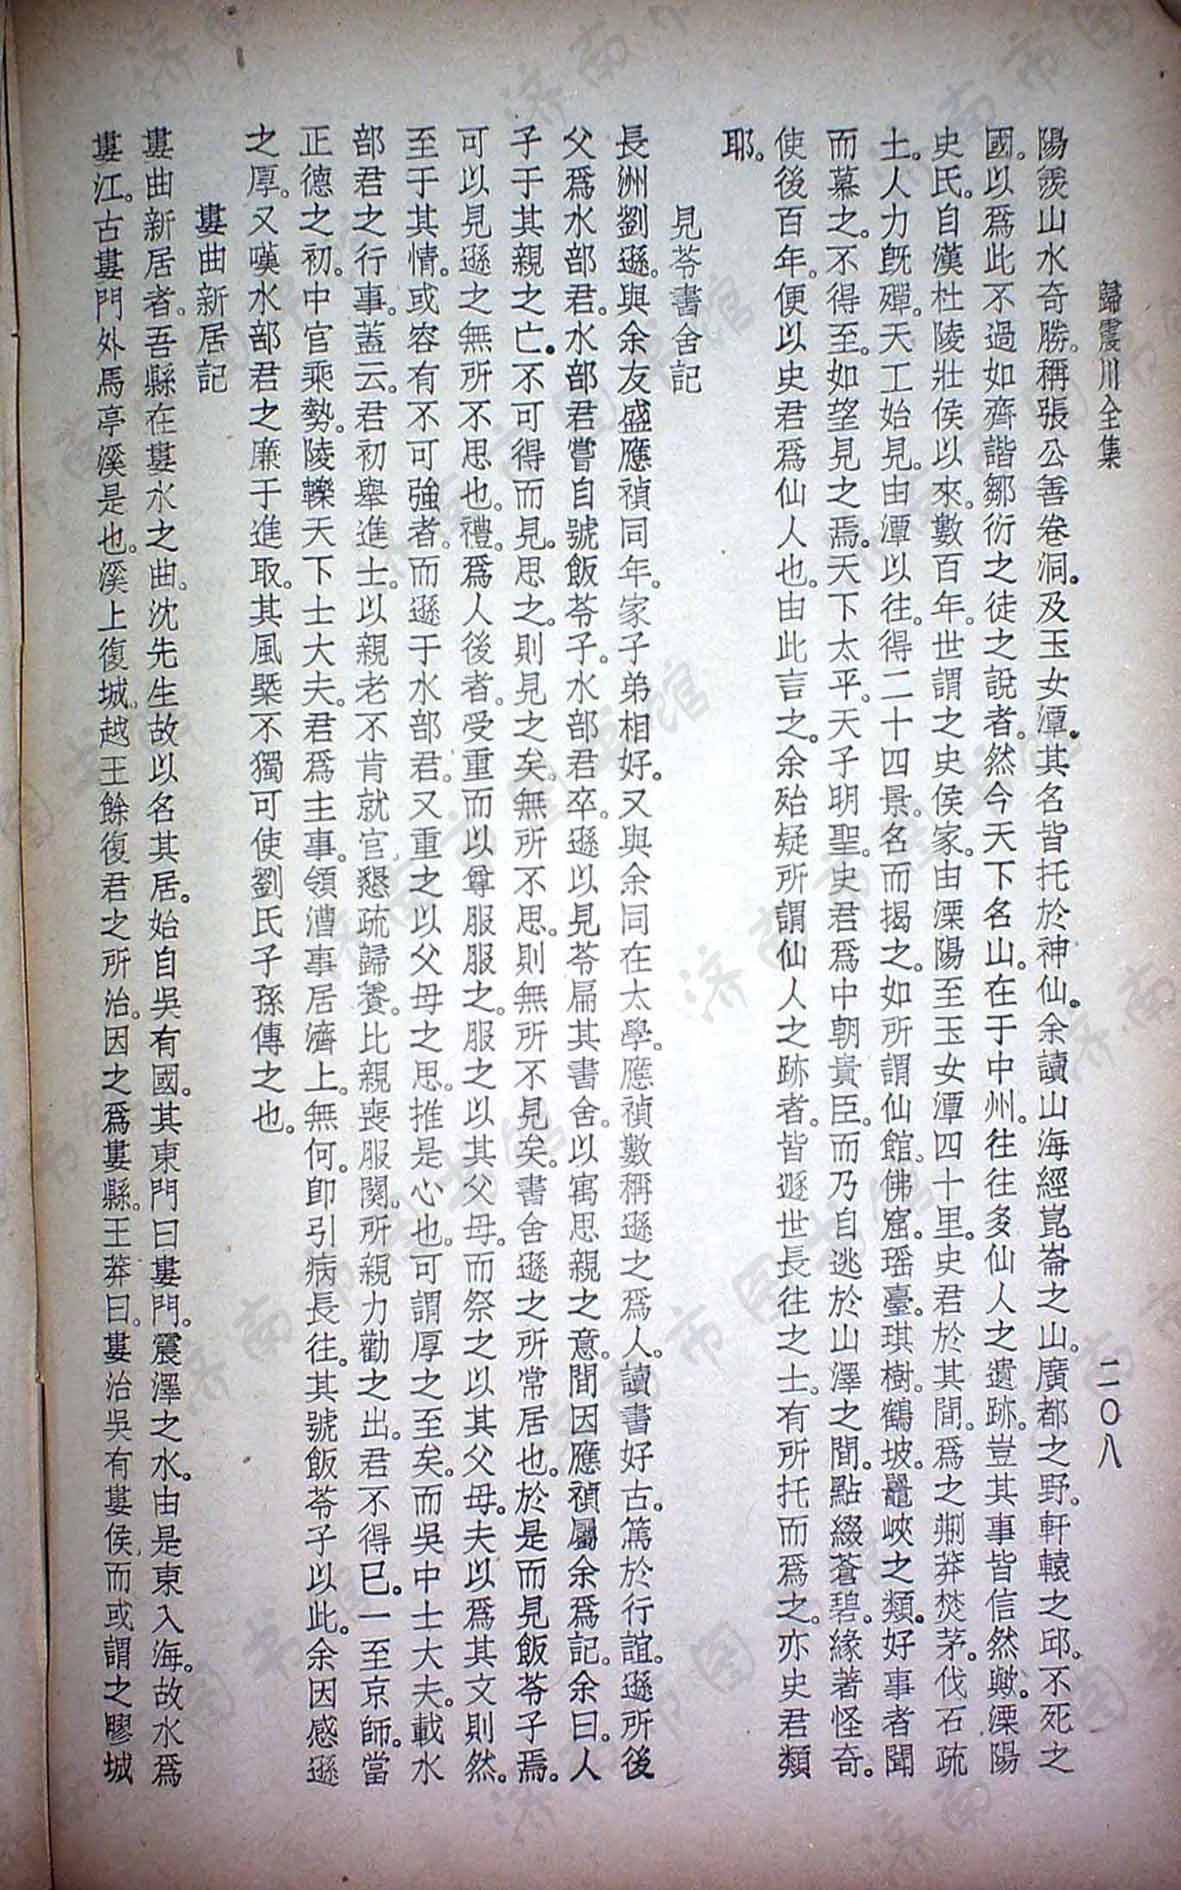 歸震川全集
二〇八
陽羨山水奇勝。稱張公善卷洞。及玉女潭。其名皆托於神仙。余讀山海經崑崙之山。廣都之野。軒轅之邱。不死之
國。以爲此不過如齊諧鄒衍之徒之說者。然今天下名山。在于中州。往往多仙人之遺跡。豈其事皆信然歟。溧陽
史氏。自漢杜陵壯侯以來。數百年。世謂之史侯家。由溧陽至玉女潭四十里。史君於其間。爲之薙莽焚茅。伐石疏
土。人力旣殫。天工始見。由潭以往。得二十四景。名而揭之。如所謂仙館。佛窟。瑶臺。琪樹。鶴坡。鼉峽之類。好事者聞
而慕之。不得至。如望見之焉。天下太平。天子明聖。史君爲中朝貴臣。而乃自逃於山澤之間。點綴蒼碧。緣著怪奇。
使後百年。便以史君爲仙人也。由此言之。余殆疑所謂仙人之跡者。皆遯世長往之士。有所托而爲之。亦史君類
耶。
見苓書舍記
長洲劉遜。與余友盛應禎同年。家子弟相好。又與余同在太學。應禎數稱遜之爲人。讀書好古。篤於行誼。遜所後
父爲水部君。水部君嘗自號飯苓子。水部君卒。遜以見苓扁其書舍。以寓思親之意。間因應禎屬余爲記。余曰。人
子于其親之亡。不可得而見。思之。則見之矣。無所不思。則無所不見矣。書舍遜之所常居也。於是而見飯苓子焉。
可以見遜之無所不思也。禮。爲人後者。受重而以尊服服之。服之以其父母。而祭之以其父母。夫以爲其文則然。
至于其情。或容有不可強者。而遜于水部君。又重之以父母之思。推是心也。可謂厚之至矣。而吳中士大夫。載水
部君之行事。蓋云。君初舉進士。以親老不肯就官。懇疏歸養。比親喪服闋。所親力勸之出。君不得已。一至京師。當
正德之初。中官乘勢。陵轢天下士大夫。君爲主事。領漕事居濟上。無何。卽引病長往。其號飯苓子以此。余因感遜
之厚。又嘆水部君之廉于進取。其風槩不獨可使劉氏子孫傳之也。
婁曲新居記
婁曲新居者。吾縣在婁水之曲。沈先生故以名其居。始自吳有國。其東門曰婁門。震澤之水。由是東入海。故水爲
婁江。古婁門外馬亭溪是也。溪上復城。越王餘復君之所治。因之爲婁縣。王莽曰。婁治吳有婁侯而或謂之䣍城